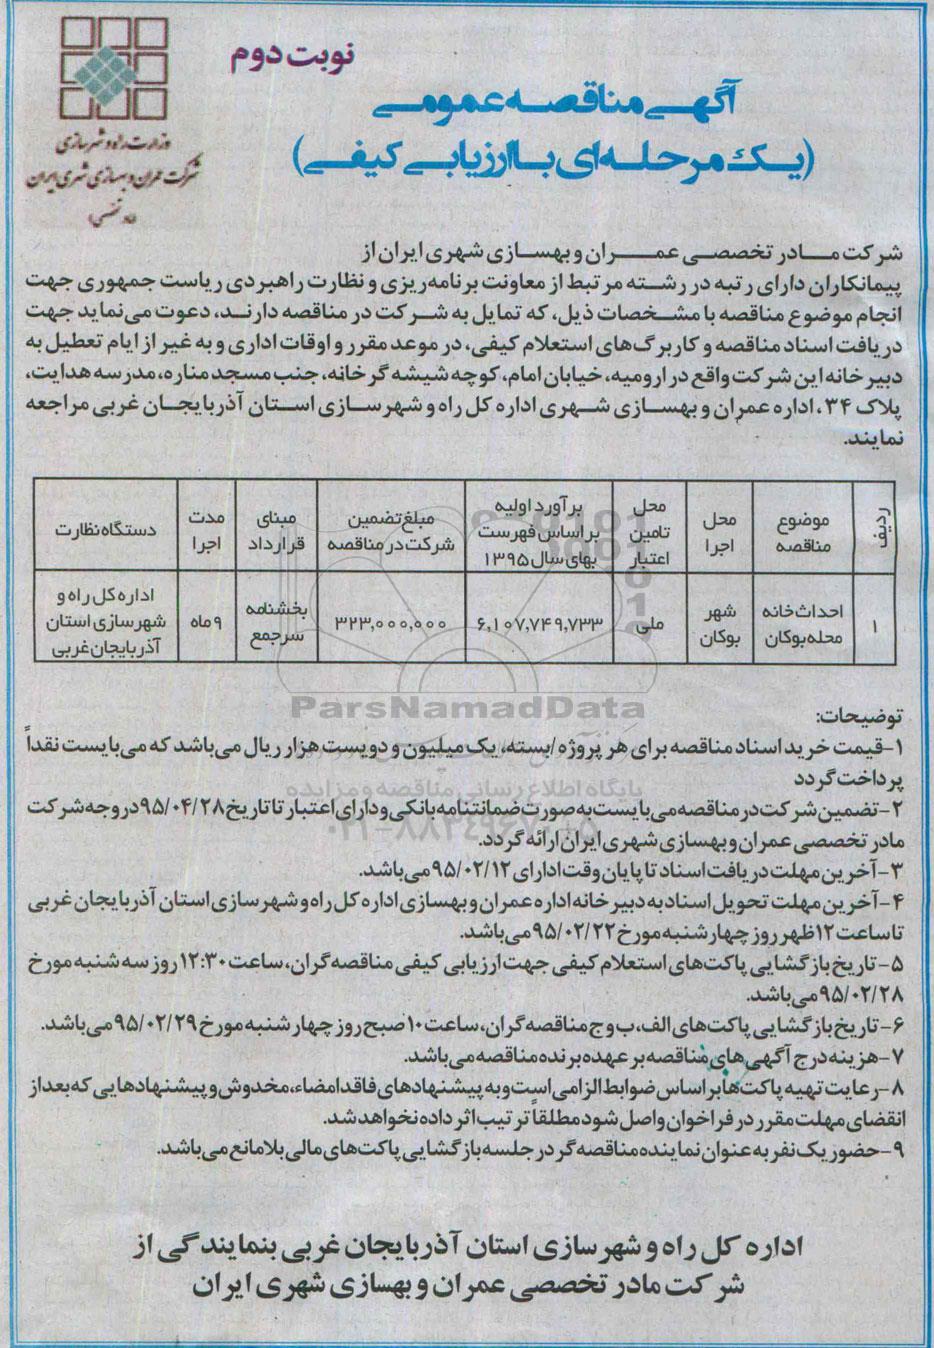 نوبت دوم
آگهی مناقصه عمومی
(یک مرحله‌ای با ارزیابی کیفی)
وزارت راه و شهرسازی
شرکت عمران و بهسازی شهری ایران
مادر تخصصی
شرکت مـادر تخصصـی عمـران و بهسـازی شهری ایران از
پیمانکاران دارای رتبه در رشته مرتبط از معاونت برنامه‌ریزی و نظارت راهبردی ریاست جمهوری جهت
انجام موضوع مناقصه با مشخصات ذیل، که تمایل به شرکت در مناقصه دارند، دعوت می‌نماید جهت
دریافت اسناد مناقصه و کاربرگ‌های استعلام کیفی، در موعد مقرر و اوقات اداری و به غیر از ایام تعطیل به
دبیرخانه این شرکت واقع در ارومیه، خیابان امام، کوچه شیشه گرخانه، جنب مسجد مناره، مدرسه هدایت،
پلاک ۳۴، اداره عمران و بهسازی شهری اداره کل راه و شهرسازی استان آذربایجان غربی مراجعه
نمایند.
ردیف | موضوع مناقصه | محل اجرا | محل تامین اعتبار | برآورد اولیه براساس فهرست بهای سال ۱۳۹۵ | مبلغ تضمین شرکت در مناقصه | مبنای قرارداد | مدت اجرا | دستگاه نظارت
۱ | احداث خانه محله بوکان | شهر بوکان | ملی | ۶,۱۰۷,۷۴۹,۷۳۳ | ۳۲۳,۰۰۰,۰۰۰ | بخشنامه سرجمع | ۹ ماه | اداره کل راه و شهرسازی استان آذربایجان غربی
ParsNamadData
پایگاه اطلاع رسانی مناقصه و مزایده
توضیحات:
۱-قیمت خرید اسناد مناقصه برای هر پروژه /بسته، یک میلیون و دویست هزار ریال می‌باشد که می‌بایست نقداً
پرداخت گردد
۲-تضمین شرکت در مناقصه می‌بایست به صورت ضمانتنامه بانکی و دارای اعتبار تا تاریخ ۹۵/۰۴/۲۸ در وجه شرکت
مادر تخصصی عمران و بهسازی شهری ایران ارائه گردد.
۳-آخرین مهلت دریافت اسناد تا پایان وقت ادارای ۹۵/۰۲/۱۲ می‌باشد.
۴-آخرین مهلت تحویل اسناد به دبیرخانه اداره عمران و بهسازی اداره کل راه و شهرسازی استان آذربایجان غربی
تا ساعت ۱۲ ظهر روز چهارشنبه مورخ ۹۵/۰۲/۲۲ می‌باشد.
۵-تاریخ بازگشایی پاکت‌های استعلام کیفی جهت ارزیابی کیفی مناقصه گران، ساعت ۱۲:۳۰ روز سه شنبه مورخ
۹۵/۰۲/۲۸ می‌باشد.
۶-تاریخ بازگشایی پاکت‌های الف، ب و ج مناقصه گران، ساعت ۱۰ صبح روز چهارشنبه مورخ ۹۵/۰۲/۲۹ می‌باشد.
۷-هزینه درج آگهی‌های مناقصه بر عهده برنده مناقصه می‌باشد.
۸-رعایت تهیه پاکت‌ها براساس ضوابط الزامی است و به پیشنهادهای فاقد امضاء، مخدوش و پیشنهادهایی که بعد از
انقضای مهلت مقرر در فراخوان واصل شود مطلقاً ترتیب اثر داده نخواهد شد.
۹-حضور یک نفر به عنوان نماینده مناقصه گر در جلسه بازگشایی پاکت‌های مالی بلامانع می‌باشد.
اداره کل راه و شهرسازی استان آذربایجان غربی بنمایندگی از
شرکت مادر تخصصی عمران و بهسازی شهری ایران